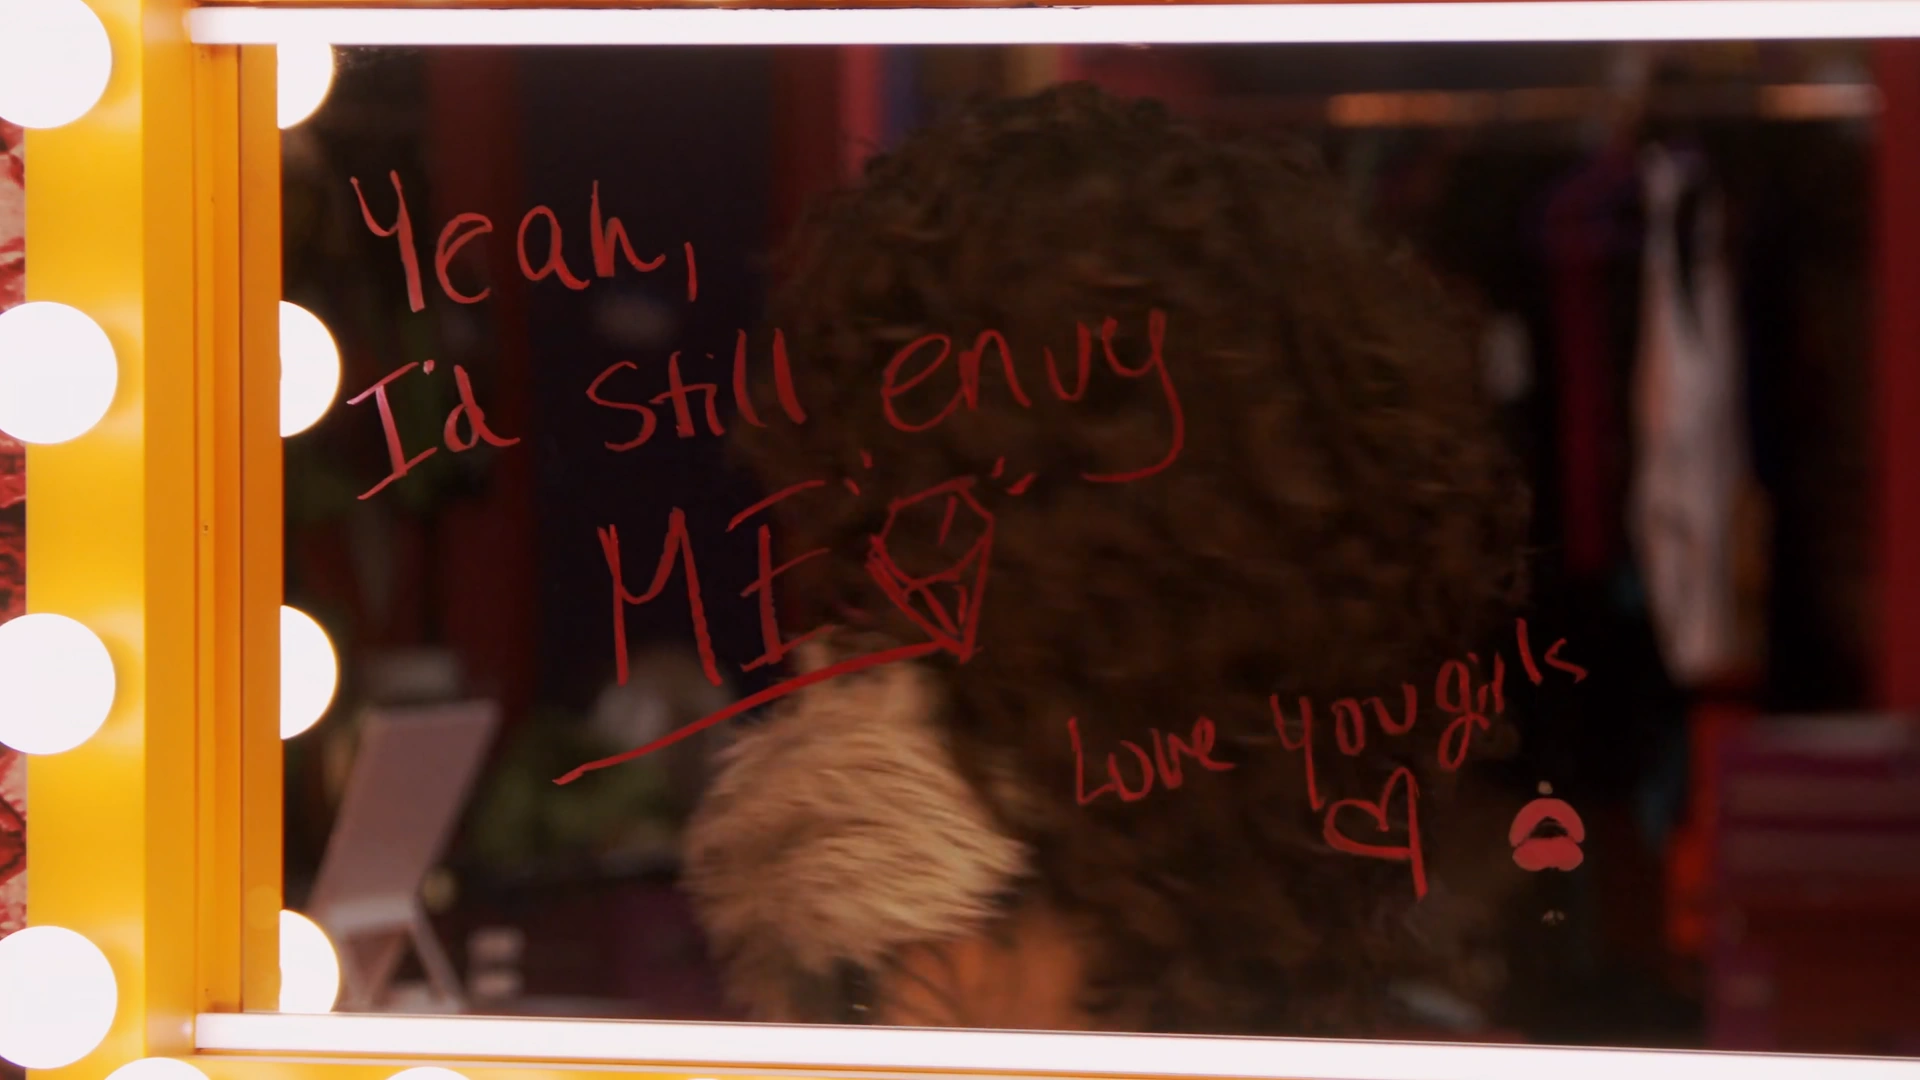 Yeah,
I'd still envy
ME
Love you girls